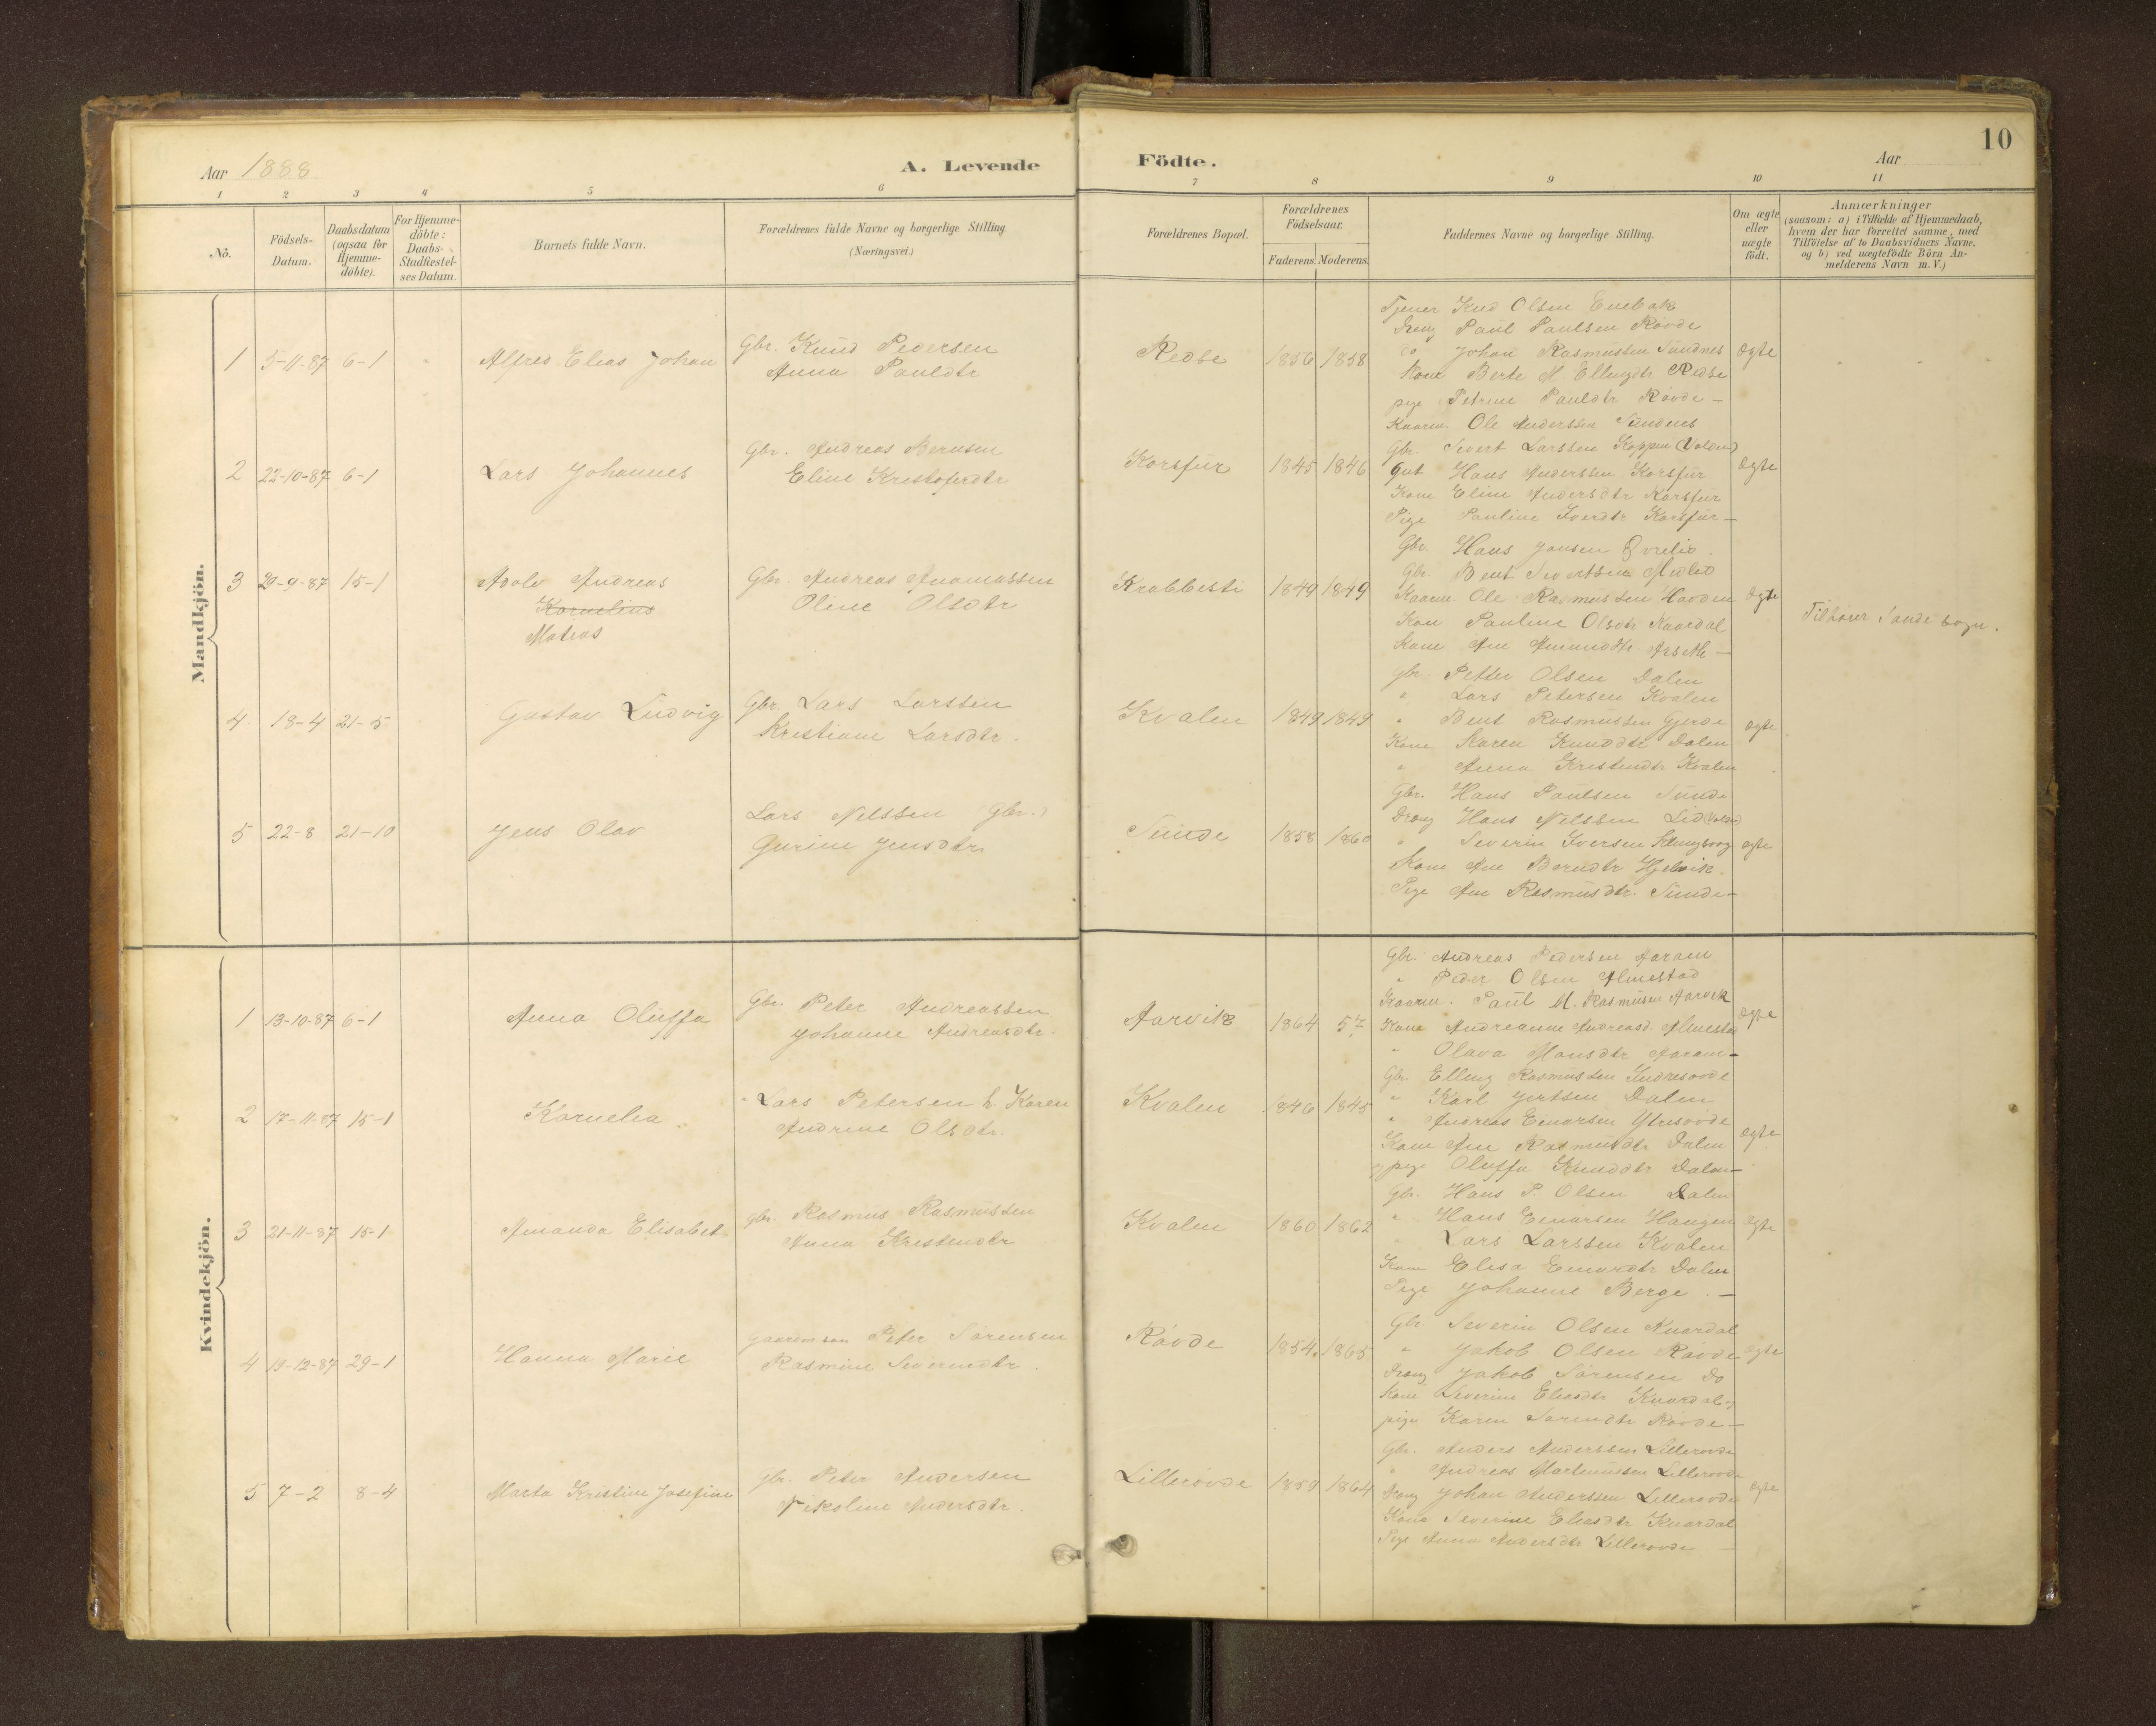 Aar 1888
A. Levende
Födte.
Aar
10
1 2 3 4 5 6 7 8 9 10 11
No.
Födsels-Datum.
Daabsdatum (ogsaa for Hjemme-döbte).
For Hjemme-döbte: Daabs-Stadfæstel-ses Datum.
Barnets fulde Navn.
Forældrenes fulde Navne og borgerlige Stilling.
(Næringsvei.)
Forældrenes Bopæl.
Forældrenes Födselsaar.
Faderens. Moderens.
Faddernes Navne og borgerlige Stilling.
Om ægte eller uægte födt.
Anmærkninger
(saasom: a) i Tilfælde af Hjemmedaab,
hvem der har forrettet samme, med
Tilföielse af to Daabsvidners Navne,
og b) ved uægtefödte Börn An-
melderens Navn m. V.)
Mandkjön.
1 5-11-87 6-1 Alfred Elias Johan
Gbr. Knud Pedersen
Anna Pauldtr
Redse 1856 1858
Tjener Knud Olsen Enebak
Dreng Paul Paulsen Røvde
do Johan Rasmussen Sundnes
Kone Berte M. Ellingdtr Redse
pige Petrine Pauldtr Røvde -
ægte
2 22-10-87 6-1 Lars Johannes
Gbr. Andreas Bernsen
Eline Kristoferdtr
Korsfur 1845 1846
Kaarm. Ole Anderssen Sundnes
Gbr. Sivert Larssen Koppen (Volden)
Gut Hans Anderssen Korsfur
Kone Eline Andersdtr Korsfur
Pige Pauline Iverdtr Korsfur -
ægte
3 29-9-87 15-1 Adolv Andreas
Kornelius
Matias
Gbr. Andreas
Oline Olsdtr
Krabbesti 1849 1849
Gbr. Hans Jansen
Gbr. Bent Sivertsen
Kaarm Ole Rasmussen
Kone Pauline Olsdtr Knardal
Kone Ane Amunddtr Arseth -
ægte
Tilhører Sande sogn.
4 18-4 21-5 Gustav Ludvig
Gbr. Lars Larssen
Kristiane Larsdtr.
Kvalen 1849 1849
Gbr. Petter Olsen Dalen
" Lars Petersen Kvalen
" Bent Rasmussen Gjerde
Kone Karen Knuddtr Dalen
" Anna Kristendtr Kvalen
ægte
5 22-8 21-10 Jens Olav
Lars Nilssen (Gbr.)
Gurine Jensdtr
Sunde 1858 1860
Gbr. Hans Paulsen Sunde
Dreng Hans Nilssen Lid
" Severin Iversen
Kone Ane Berndtr Hjelvik.
Pige Ane Rasmusdtr. Sunde -
ægte
Kvindekjön.
1 13-10-87 6-1 Anna Oluffa
Gbr. Peter Andreassen
Johanne Andreasdtr.
Aarvik 1864 57
Gbr. Andreas Pedersen Aaram
" Peder Olsen Almestad
Kaarm. Paul M. Rasmusen Aarvik
Kone Andreanne Andreasd. Almestad
" Olava Hansdtr Aaram -
ægte
2 17-11-87 15-1 Kornelia
Lars Petersen h. Karen
Andrine Olsdtr.
Kvalen 1846 1845
Gbr. Elling Rasmussen Indrerøvde
" Karl Dalen
" Andreas Einarsen Ytrerøvde
Kone Ane Rasmusdtr Dalen
pige Oluffa Knuddtr Dalen -
ægte
3 21-11-87 15-1 Amanda Elisabet
gbr. Rasmus Rasmussen
Anna Kristendtr
Kvalen 1860 1862
Gbr. Hans P. Olsen Dalen
" Hans Einarsen Haugen
" Lars Larssen Kvalen
Kone Elisa Einardtr Dalen
Pige Johanne Berge. -
ægte
4 19-12-87 29-1 Hanna Marie
Peter Sørensen
Rasmine Severindtr.
Røvde 1854. 1865
Gbr. Severin Olsen Knardal
" Jakob Olsen Røvde
Dreng Jakob Sørensen Do
Kone Severine Eliasdtr Knardal og
pige Karen Sørendtr Røvde -
ægte
5 7-2 8-4 Marta Kristine Josefine
Gbr. Peter Andersen
Nikoline Andersdtr.
Lillerøvde 1859 1864
Gbr. Anders Anderssen Lillerøvde
" Andreas Martinussen Lillerøvde
Dreng Johan Anderssen Lillerøvde
Kone Severine Eliasdtr Knardal
Pige Anna Andersdtr Lillerøvde -
ægte